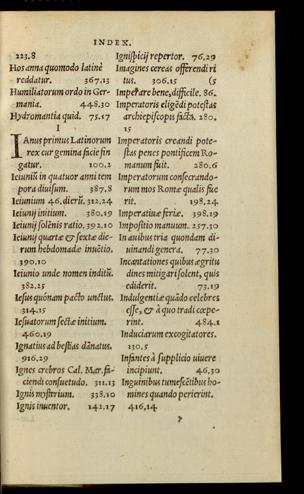 INDEX.
223.8
Hosanna quomodo latinè
reddatur. 367.13
Humiliatorum ordo in Ger-
mania. 448.30
Hydromantia quid. 75.17
I
IAnus primus Latinorum
rex cur gemina facie fin
gatur. 100.2
Ieiuniũ in quatuor anni tem
pora diuisum. 387.8
Ieiunium 46. dierũ. 312.24
Ieiunij initium. 380.19
Ieiunij solēnis ratio. 392.10
Ieiunij quartæ & sextæ die-
rum hebdomadæ inuētio.
390.10
Ieiunio unde nomen inditũ.
382.25
Iesus quònam pacto unctus.
314.15
Iesuatorum sectæ initium.
460.19
Ignatius ad bestias dãnatus.
916.29
Ignes crebros Cal. Mar. fa-
ciendi consuetudo. 311.13
Ignis mysterium. 338.10
Ignis inuentor. 142.17
Ignispicij repertor. 76.29
Imagines cereas offerendi ri
tus. 306.15 (5
Imperare bene, difficile. 86.
Imperatoris eligēdi potestas
archiepiscopis facta. 280.
15
Imperatoris creandi pote-
stas penes pontificem Ro-
manum fuit. 280.6
Imperatorum consecrando-
rum mos Romæ qualis fue
rit. 198.24
Imperatiuæ feriæ. 398.19
Impositio manuum. 257.30
In auibus tria quondam di-
uinandi genera. 77.30
Incantationes quibus ægritu
dines mitigari solent, quis
ediderit. 73.19
Indulgentiæ quãdo celebres
esse, & à quo tradi cœpe-
rint. 484.1
Induciarum excogitatores.
130.5
Infantes à supplicio uiuere
incipiunt. 46.30
Inguinibus tumescētibus ho-
mines quando perierint.
416.14